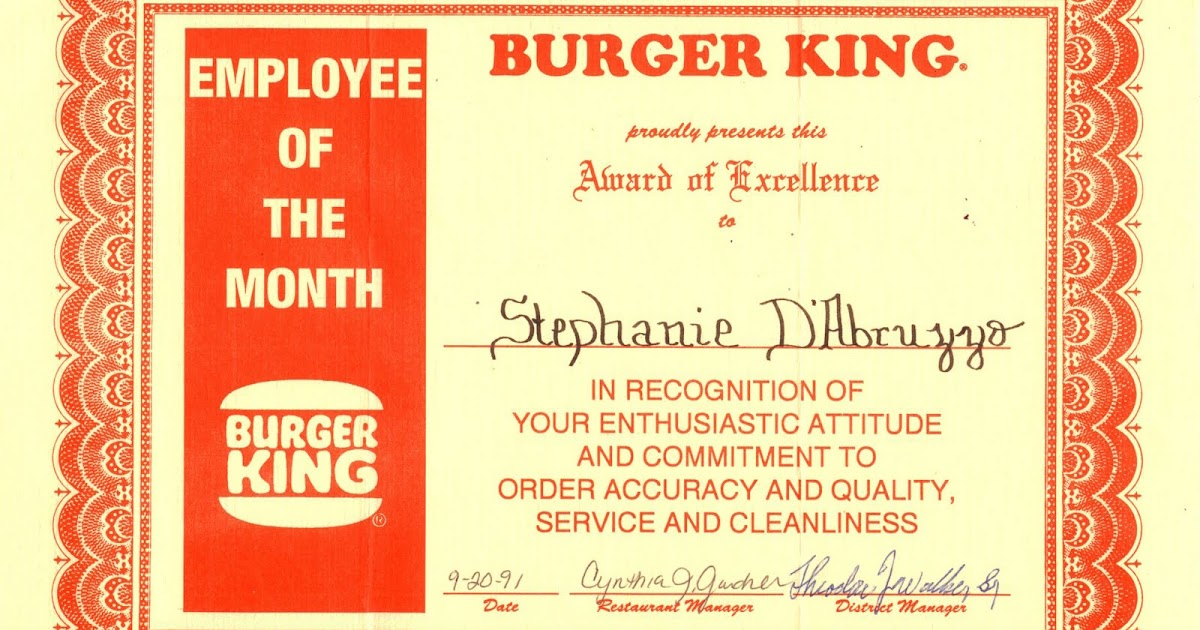 EMPLOYEE
OF
THE
MONTH
BURGER
KING
®
BURGER KING®
proudly presents this
Award of Excellence
to
Stephanie D'Abruzzo
IN RECOGNITION OF
YOUR ENTHUSIASTIC ATTITUDE
AND COMMITMENT TO
ORDER ACCURACY AND QUALITY,
SERVICE AND CLEANLINESS
9-20-91 Cynthia J. Walker Sr
Date Restaurant Manager District Manager